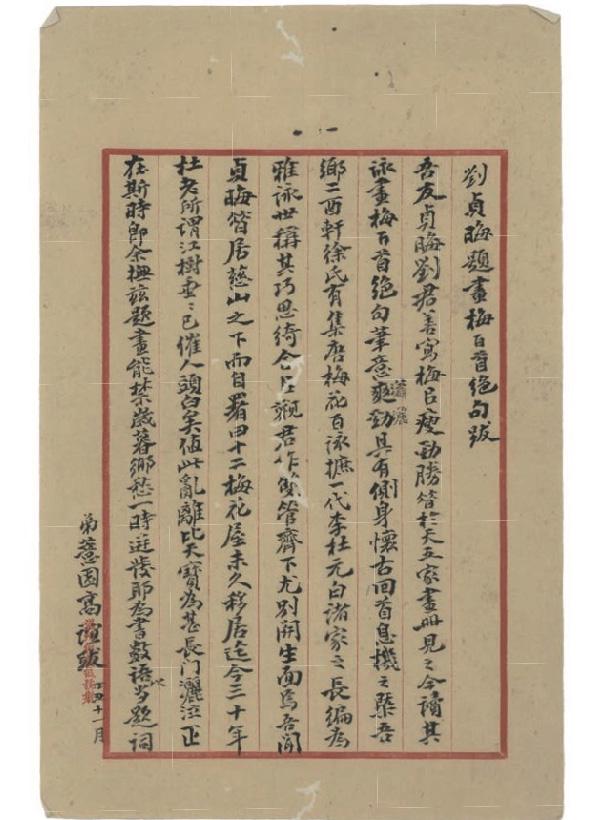 劉貞晦題畫梅百首絕句跋
吾友貞晦劉君善寫梅以瘦勁勝昔於天五家畫冊見之今讀其
詠畫梅百首絕句筆意爽勁瀟灑具有側身懷古回首息機之槩吾
鄉二酉軒徐氏有集唐梅花百詠摭一代李杜元白諸家之長編為
雅詠世稱其巧思綺合以觀君作雙管齊下尤別開生面焉吾聞
貞晦昔居慈山之下而自署四十二梅花屋未久移居迄今三十年
杜老所謂江樹垂〻已催人頭白矣值此亂離比天寶為甚長門灑泣正
在斯時即余撫茲題畫能禁歲暮鄉愁一時迸發耶為書數語以當題詞
弟薏園高誼跋 十一月